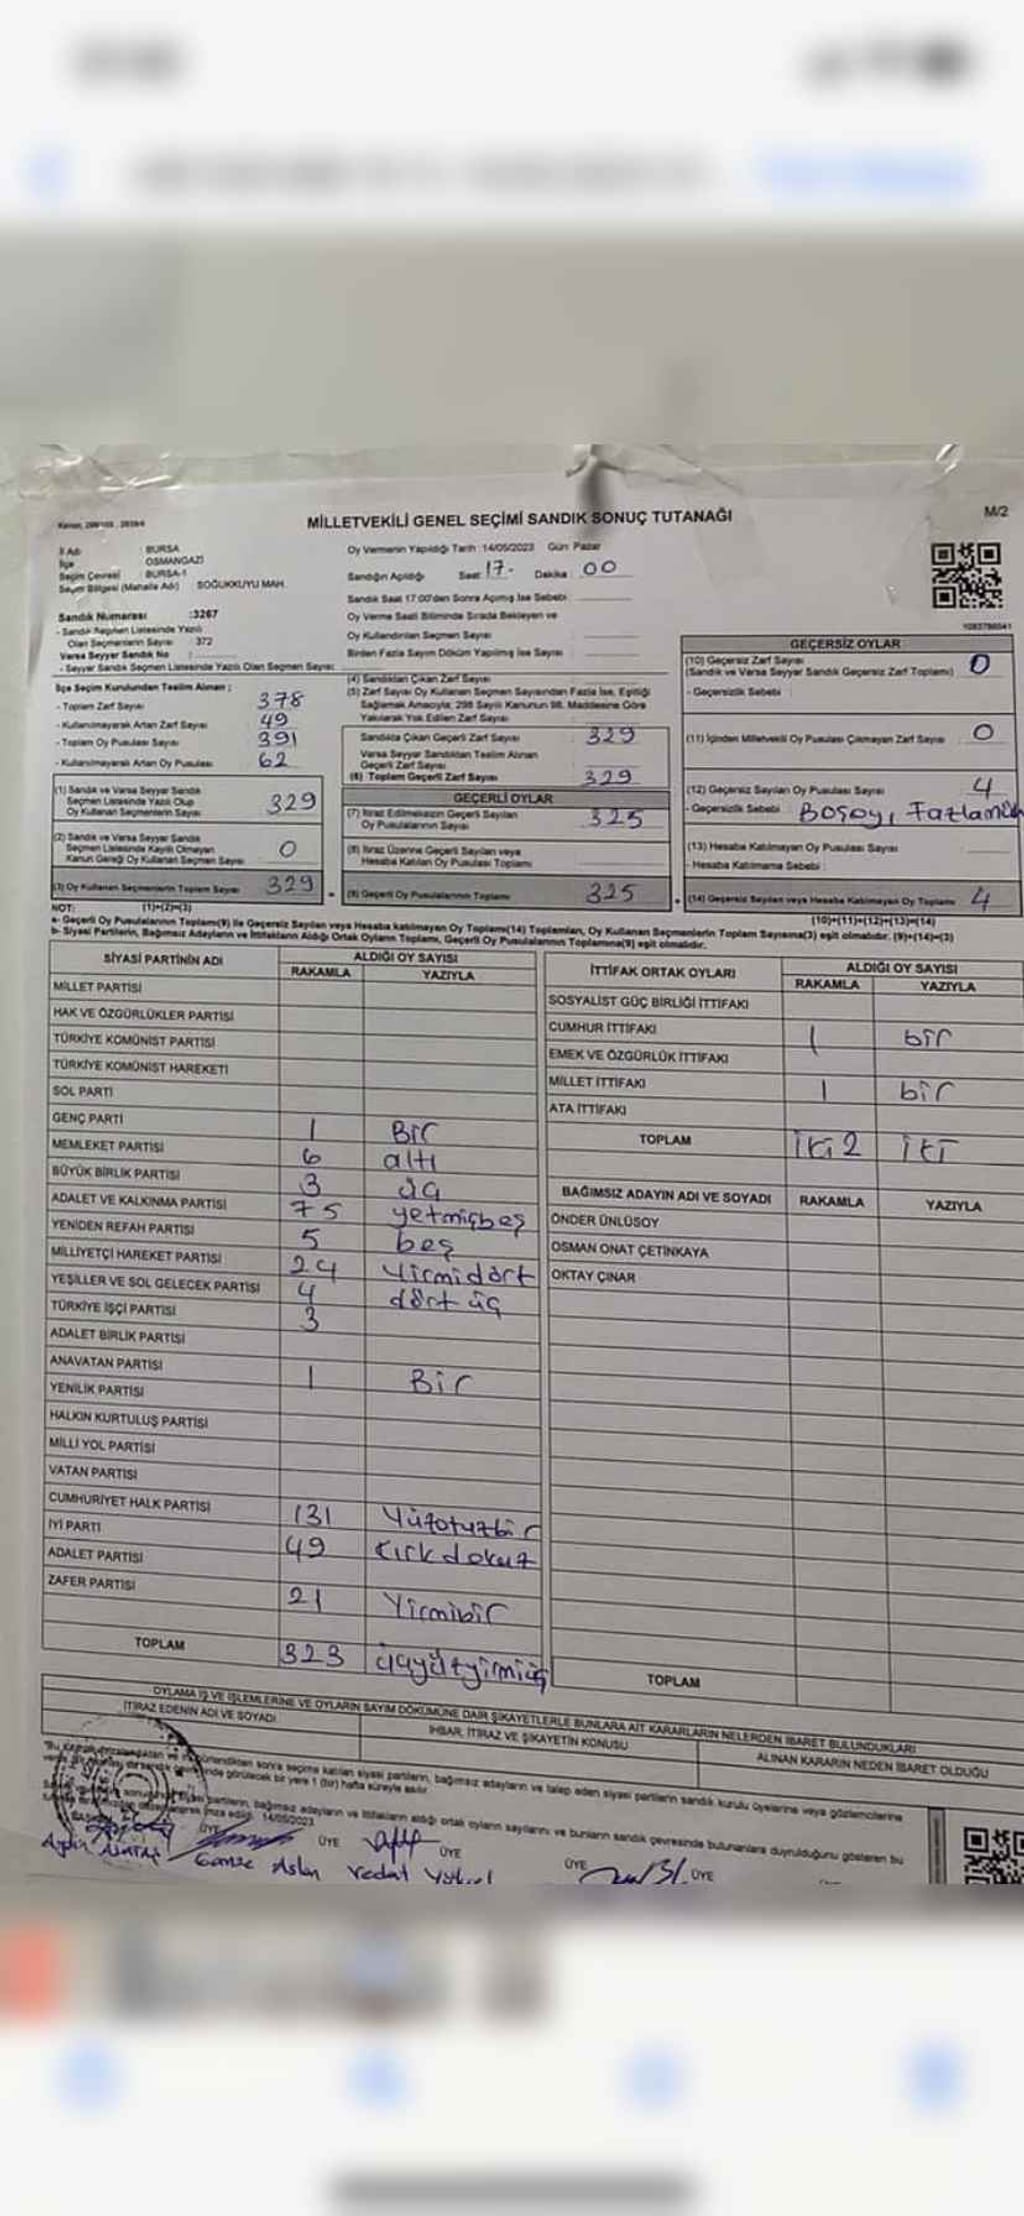 MİLLETVEKİLİ GENEL SEÇİMİ SANDIK SONUÇ TUTANAĞI
M/2
İl Adı : BURSA
İlçe : OSMANGAZİ
Seçim Çevresi : BURSA-1
Seçim Bölgesi (Mahalle Adı) : SOĞUKKUYU MAH.
Sandık Numarası :3267
- Sandık Seçmen Listesinde Yazılı
Olan Seçmenlerin Sayısı 372
Varsa Seyyar Sandık No :
- Seyyar Sandık Seçmen Listesinde Yazılı Olan Seçmen Sayısı:
Oy Vermenin Yapıldığı Tarih :14/05/2023 Gün: Pazar
Sandığın Açıldığı Saat 17. Dakika 00
Sandık Saat 17:00'den Sonra Açılmış İse Sebebi :
Oy Verme Saati Bitiminde Sırada Bekleyen ve
Oy Kullandırılan Seçmen Sayısı
Birden Fazla Sayım Döküm Yapılmış İse Sayısı
İlçe Seçim Kurulundan Teslim Alınan :
- Toplam Zarf Sayısı 378
- Kullanılmayarak Artan Zarf Sayısı 49
- Toplam Oy Pusulası Sayısı 391
- Kullanılmayarak Artan Oy Pusulası 62
(1) Sandık ve Varsa Seyyar Sandık
Seçmen Listesinde Yazılı Olup
Oy Kullanan Seçmenlerin Sayısı 329
(2) Sandık ve Varsa Seyyar Sandık
Seçmen Listesinde Kayıtlı Olmayan
Kanun Gereği Oy Kullanan Seçmen Sayısı 0
(3) Oy Kullanan Seçmenlerin Toplam Sayısı 329
(4) Sandıktan Çıkan Zarf Sayısı
(5) Zarf Sayısı Oy Kullanan Seçmen Sayısından Fazla İse, Eşitliği
Sağlamak Amacıyla, 298 Sayılı Kanunun 98. Maddesine Göre
Yakılarak Yok Edilen Zarf Sayısı
Sandıkta Çıkan Geçerli Zarf Sayısı 329
Varsa Seyyar Sandıktan Teslim Alınan
Geçerli Zarf Sayısı
(6) Toplam Geçerli Zarf Sayısı 329
GEÇERLİ OYLAR
(7) İtiraz Edilmeksizin Geçerli Sayılan
Oy Pusulalarının Sayısı 325
(8) İtiraz Üzerine Geçerli Sayılan veya
Hesaba Katılan Oy Pusulası Toplamı
(9) Geçerli Oy Pusulalarının Toplamı 325
GEÇERSİZ OYLAR
(10) Geçersiz Zarf Sayısı 0
(Sandık ve Varsa Seyyar Sandık Geçersiz Zarf Toplamı)
- Geçersizlik Sebebi :
(11) İçinden Milletvekili Oy Pusulası Çıkmayan Zarf Sayısı 0
(12) Geçersiz Sayılan Oy Pusulası Sayısı 4
- Geçersizlik Sebebi :
(13) Hesaba Katılmayan Oy Pusulası Sayısı
- Hesaba Katılmama Sebebi :
(14) Geçersiz Sayılan veya Hesaba Katılmayan Oy Toplamı 4
NOT: (1)+(2)=(3)
(10)+(11)+(12)+(13)=(14)
a- Geçerli Oy Pusulalarının Toplamı(9) ile Geçersiz Sayılan veya Hesaba katılmayan Oy Toplamı(14) Toplamları, Oy Kullanan Seçmenlerin Toplam Sayısına(3) eşit olmalıdır. (9)+(14)=(3)
b- Siyasi Partilerin, Bağımsız Adayların ve İttifakların Aldığı Ortak Oyların Toplamı, Geçerli Oy Pusulalarının Toplamına(9) eşit olmalıdır.
SİYASİ PARTİNİN ADI
ALDIĞI OY SAYISI
RAKAMLA YAZIYLA
MİLLET PARTİSİ
HAK VE ÖZGÜRLÜKLER PARTİSİ
TÜRKİYE KOMÜNİST PARTİSİ
TÜRKİYE KOMÜNİST HAREKETİ
SOL PARTİ
GENÇ PARTİ 1 Bir
MEMLEKET PARTİSİ 6 altı
BÜYÜK BİRLİK PARTİSİ 3 üç
ADALET VE KALKINMA PARTİSİ 75 yetmişbeş
YENİDEN REFAH PARTİSİ 5 beş
MİLLİYETÇİ HAREKET PARTİSİ 24 Yirmidört
YEŞİLLER VE SOL GELECEK PARTİSİ 4 dört
TÜRKİYE İŞÇİ PARTİSİ 3 üç
ADALET BİRLİK PARTİSİ
ANAVATAN PARTİSİ 1 Bir
YENİLİK PARTİSİ
HALKIN KURTULUŞ PARTİSİ
MİLLİ YOL PARTİSİ
VATAN PARTİSİ
CUMHURİYET HALK PARTİSİ 131 Yüzotuzbir
İYİ PARTİ 49 Kırkdokuz
ADALET PARTİSİ
ZAFER PARTİSİ 21 Yirmibir
TOPLAM 323 üçyüzyirmiüç
İTTİFAK ORTAK OYLARI
ALDIĞI OY SAYISI
RAKAMLA YAZIYLA
SOSYALİST GÜÇ BİRLİĞİ İTTİFAKI
CUMHUR İTTİFAKI 1 bir
EMEK VE ÖZGÜRLÜK İTTİFAKI
MİLLET İTTİFAKI 1 bir
ATA İTTİFAKI
TOPLAM iki 2 iki
BAĞIMSIZ ADAYIN ADI VE SOYADI RAKAMLA YAZIYLA
ÖNDER ÜNLÜSOY
OSMAN ONAT ÇETİNKAYA
OKTAY ÇINAR
TOPLAM
OYLAMA İŞ VE İŞLEMLERİNE VE OYLARIN SAYIM DÖKÜMÜNE DAİR ŞİKAYETLERLE BUNLARA AİT KARARLARIN NELERDEN İBARET BULUNDUKLARI
İTİRAZ EDENİN ADI VE SOYADI
İHBAR, İTİRAZ VE ŞİKAYETİN KONUSU
ALINAN KARARIN NEDEN İBARET OLDUĞU
sonra seçime katılan siyasi partilerin, bağımsız adayların ve talep eden siyasi partilerin sandık kurulu üyelerine veya gözlemcilerine
görülecek bir yere 1 (bir) hafta süreyle asılır.
partilerin, bağımsız adayların ve ittifakların aldığı ortak oyların sayılarını ve bunların sandık çevresinde bulunanlara duyrulduğunu gösteren bu
imza edildi. 14/05/2023
ÜYE ÜYE ÜYE ÜYE ÜYE
Gamze Aslan Vedat